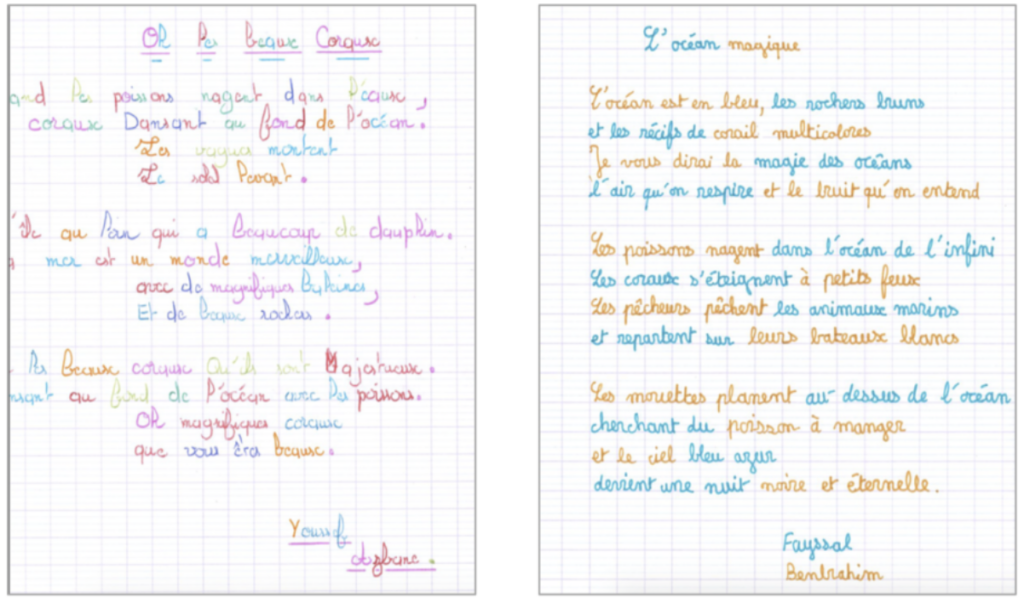 Oh les beaux Coraux
and les poissons nagent dans l'eaux,
coraux Dansant au fond de l'océan.
Les vagues montent
Le soleil levant.
île au loin qui a beaucoup de dauphin.
mer est un monde merveilleux,
avec de magnifiques
Et de beaux rochers.
les beaux coraux Qu'ils sont Majestueux.
nsant au fond de l'océan avec les poissons.
Oh magnifiques coraux
que vous êtes beaux.
Youssef
L'océan magique
L'océan est en bleu, les rochers bruns
et les récifs de corail multicolores
Je vous dirai la magie des océans
l'air qu'on respire et le bruit qu'on entend
Les poissons nagent dans l'océan de l'infini
Les coraux s'éteignent à petits feux
Les pêcheurs pêchent les animaux marins
et repartent sur leurs bateaux blancs
Les mouettes planent au-dessus de l'océan
cherchant du poisson à manger
et le ciel bleu azur
devient une nuit noire et éternelle.
Fayssal
Benbrahim